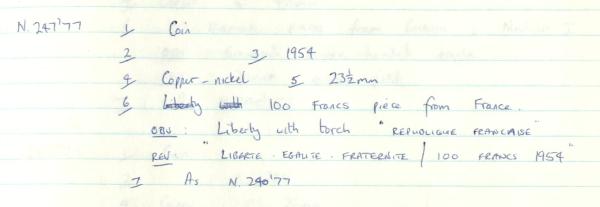 N. 247'77 1 Coin
2 3 1954
4 Copper-nickel 5 23½mm
6 Liberty with 100 Francs piece from France.
OBV: Liberty with torch "REPUBLIQUE FRANCAISE"
REV "LIBERTE. EGALITE. FRATERNITE / 100 FRANCS 1954"
7 As N. 240'77